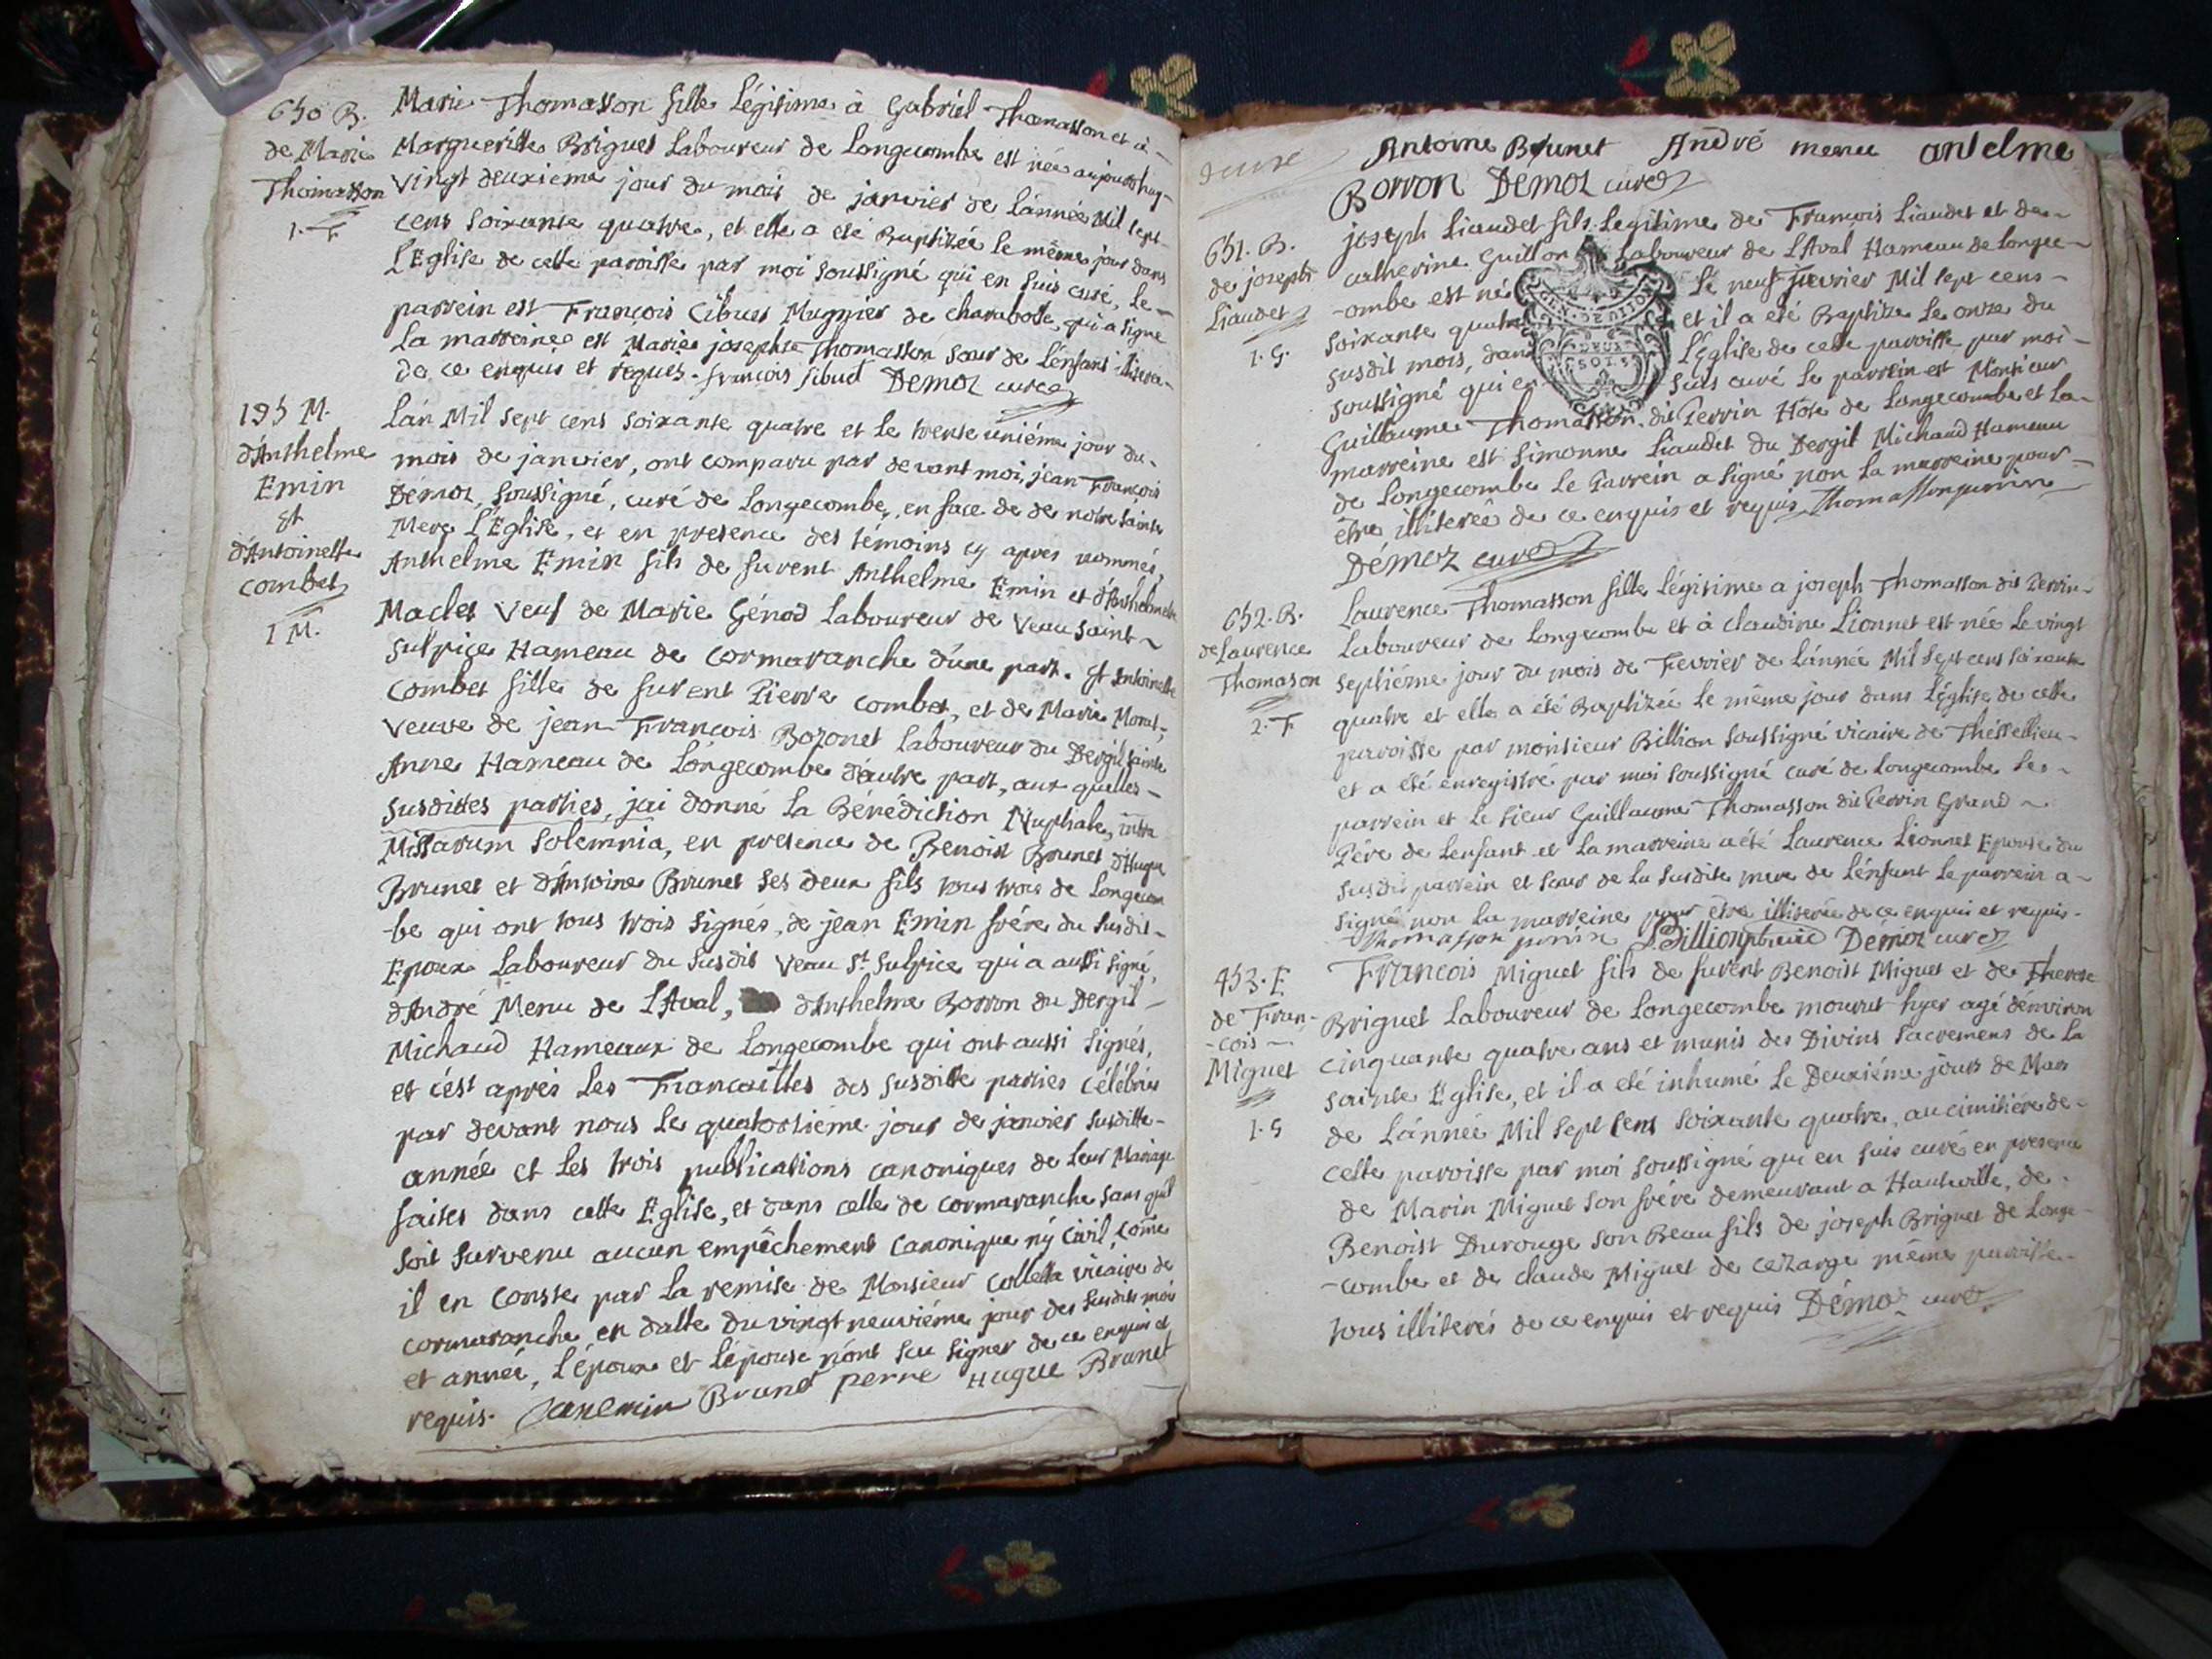 650 B.
de Marie
Thomasson
1. F
Marie Thomasson fille Légitime à Gabriel Thomasson et à -
Margueritte Briguet Laboureur de Longecombe est née aujourdhuy -
vingt deuxieme jour du mois de janvier de L'année Mil sept -
cens soixante quatre, et elle a eté Baptizée le même jour dans
L'Eglise de cette paroisse par moi soussigné qui en suis curé, Le -
parrein est François Cibuet Mugnier de charabotte, qui a signé
La marreine est Marie josephte Thomasson sœur de L'enfant illiteree -
de ce enquis et requis. françois sibuet Demoz curé
195 M.
d'Anthelme
Emin
et
d'Antoinette
Combet
1 M.
L'an Mil sept cens soixante quatre et le trente uniéme jour du -
mois de janvier, ont comparu par devant moi, jean François
Démoz, soussigné, curé de Longecombe, en face de de notre sainte
Mere L'Eglise, et en presence des témoins cy apres nommés,
Anthelme Emin fils de furent Anthelme Emin et d'Anthelmette
Maclet Veuf de Marie Génod Laboureur de Veau saint ~
sulpice Hameau de Cormaranche d'une part. Et Antoinette
Combet fille de furent Pierre Combet, et de Marie Moret,
Veuve de jean François Bozonet Laboureur du Dergit sainte
Anne Hameau de Longecombe d'autre part, aux quelles -
susdittes parties, j'ai donné La Bénédiction Nuptiale, intra
Missarum Solemnia, en presence de Benoist Brunet d'Hugue
Brunet et d'Antoine Brunet ses deux fils tous trois de Longecom
-be qui ont tous trois signés, de jean Emin frére du susdit -
Epoux Laboureur du susdit Veau St. Sulpice qui a aussi signé,
d'André Menu de L'Aval, d'Anthelme Borron du Dergit -
Michaud Hameaux de Longecombe qui ont aussi signés,
et c'est aprés Les Francailles des susditte parties célébrées
par devant nous Le quatorziéme jour de janvier susditte -
année et Les trois publications canoniques de Leur Mariage
faites dans cette Eglise, et dans celle de cormaranche sans qu'il
soit survenu aucun empêchement canonique ny Civil, Come
il en conste par La remise de Monsieur Colletta vicaire de
cormaranche en datte du vingt neuviéme jour des susdits mois
et année, L'époux et L'épouse n'ont scu signer de ce enquis et
requis. jan emin Brunet perre Hugue Brunet
Antoine Brunet André menu antelme
Borron Demoz curé
651. B.
de joseph
Liaudet
1. G.
joseph Liaudet fils Legitime de François Liaudet et de -
catherine Guillon Laboureur de L'Aval Hameau de Longec -
-ombe est né Le neuf Fevrier Mil sept cens -
soixante quatre et il a eté Baptize Le onze du
susdit mois, dans L'Eglise de cette paroisse par moi -
soussigné qui en suis curé Le parrein est Monsieur
Guillaume Thomasson dit Perrin Hôte de Longecombe et La -
marreine est Simonne Liaudet du Dergit Michaud Hameau
de Longecombe Le Parrein a signé non La marreine pour -
être illiterée de ce enquis et requis Thomasson perrin
Démoz curé
652. B.
de Laurence
Thomasson
2. F
Laurence Thomasson fille Légitime a joseph Thomasson dit Perrin -
Laboureur de Longecombe et à claudine Lionnet est née Le vingt
septiéme jour du mois de Fevrier de L'année Mil sept cens soixante
quatre et elle a été Baptizée Le même jour dans L'église de cette
paroisse par monsieur Billion soussigné vicaire de Thesellieu -
et a eté enregistré par moi soussigné curé de Longecombe Le -
parrein et Le sieur Guillaume Thomasson dit Perrin Grand ~
Pére de Lenfant et La marreine a été Laurence Lionnet Epouse du
susdit parrein et sœur de La susdite mere de L'enfant Le parrein a -
signé non La marreine pour être illiterée de ce enquis et requis -
Thomasson perrin Billion Démoz curé
453. E
de Fran-
-cois ~
Miguet
1. G
François Miguet fils de furent Benoist Miguet et de Therese
Briguet Laboureur de Longecombe mourut hyer agé d'environ
cinquante quatre ans et munis des Divins sacremens de La
sainte Eglise, et il a eté inhumé Le Deuxiéme jours de Mars
de L'année Mil sept cens soixante quatre, au cimitiére de -
cette paroisse par moi soussigné qui en suis curé en presence
de Marin Miguet son frére demeurant a Hauteville, de
Benoist Durouge son Beau fils de joseph Briguet de Longe -
-combe et de claude Miguet de cezarge même paroisse -
tous illiterés de ce enquis et requis Démoz curé